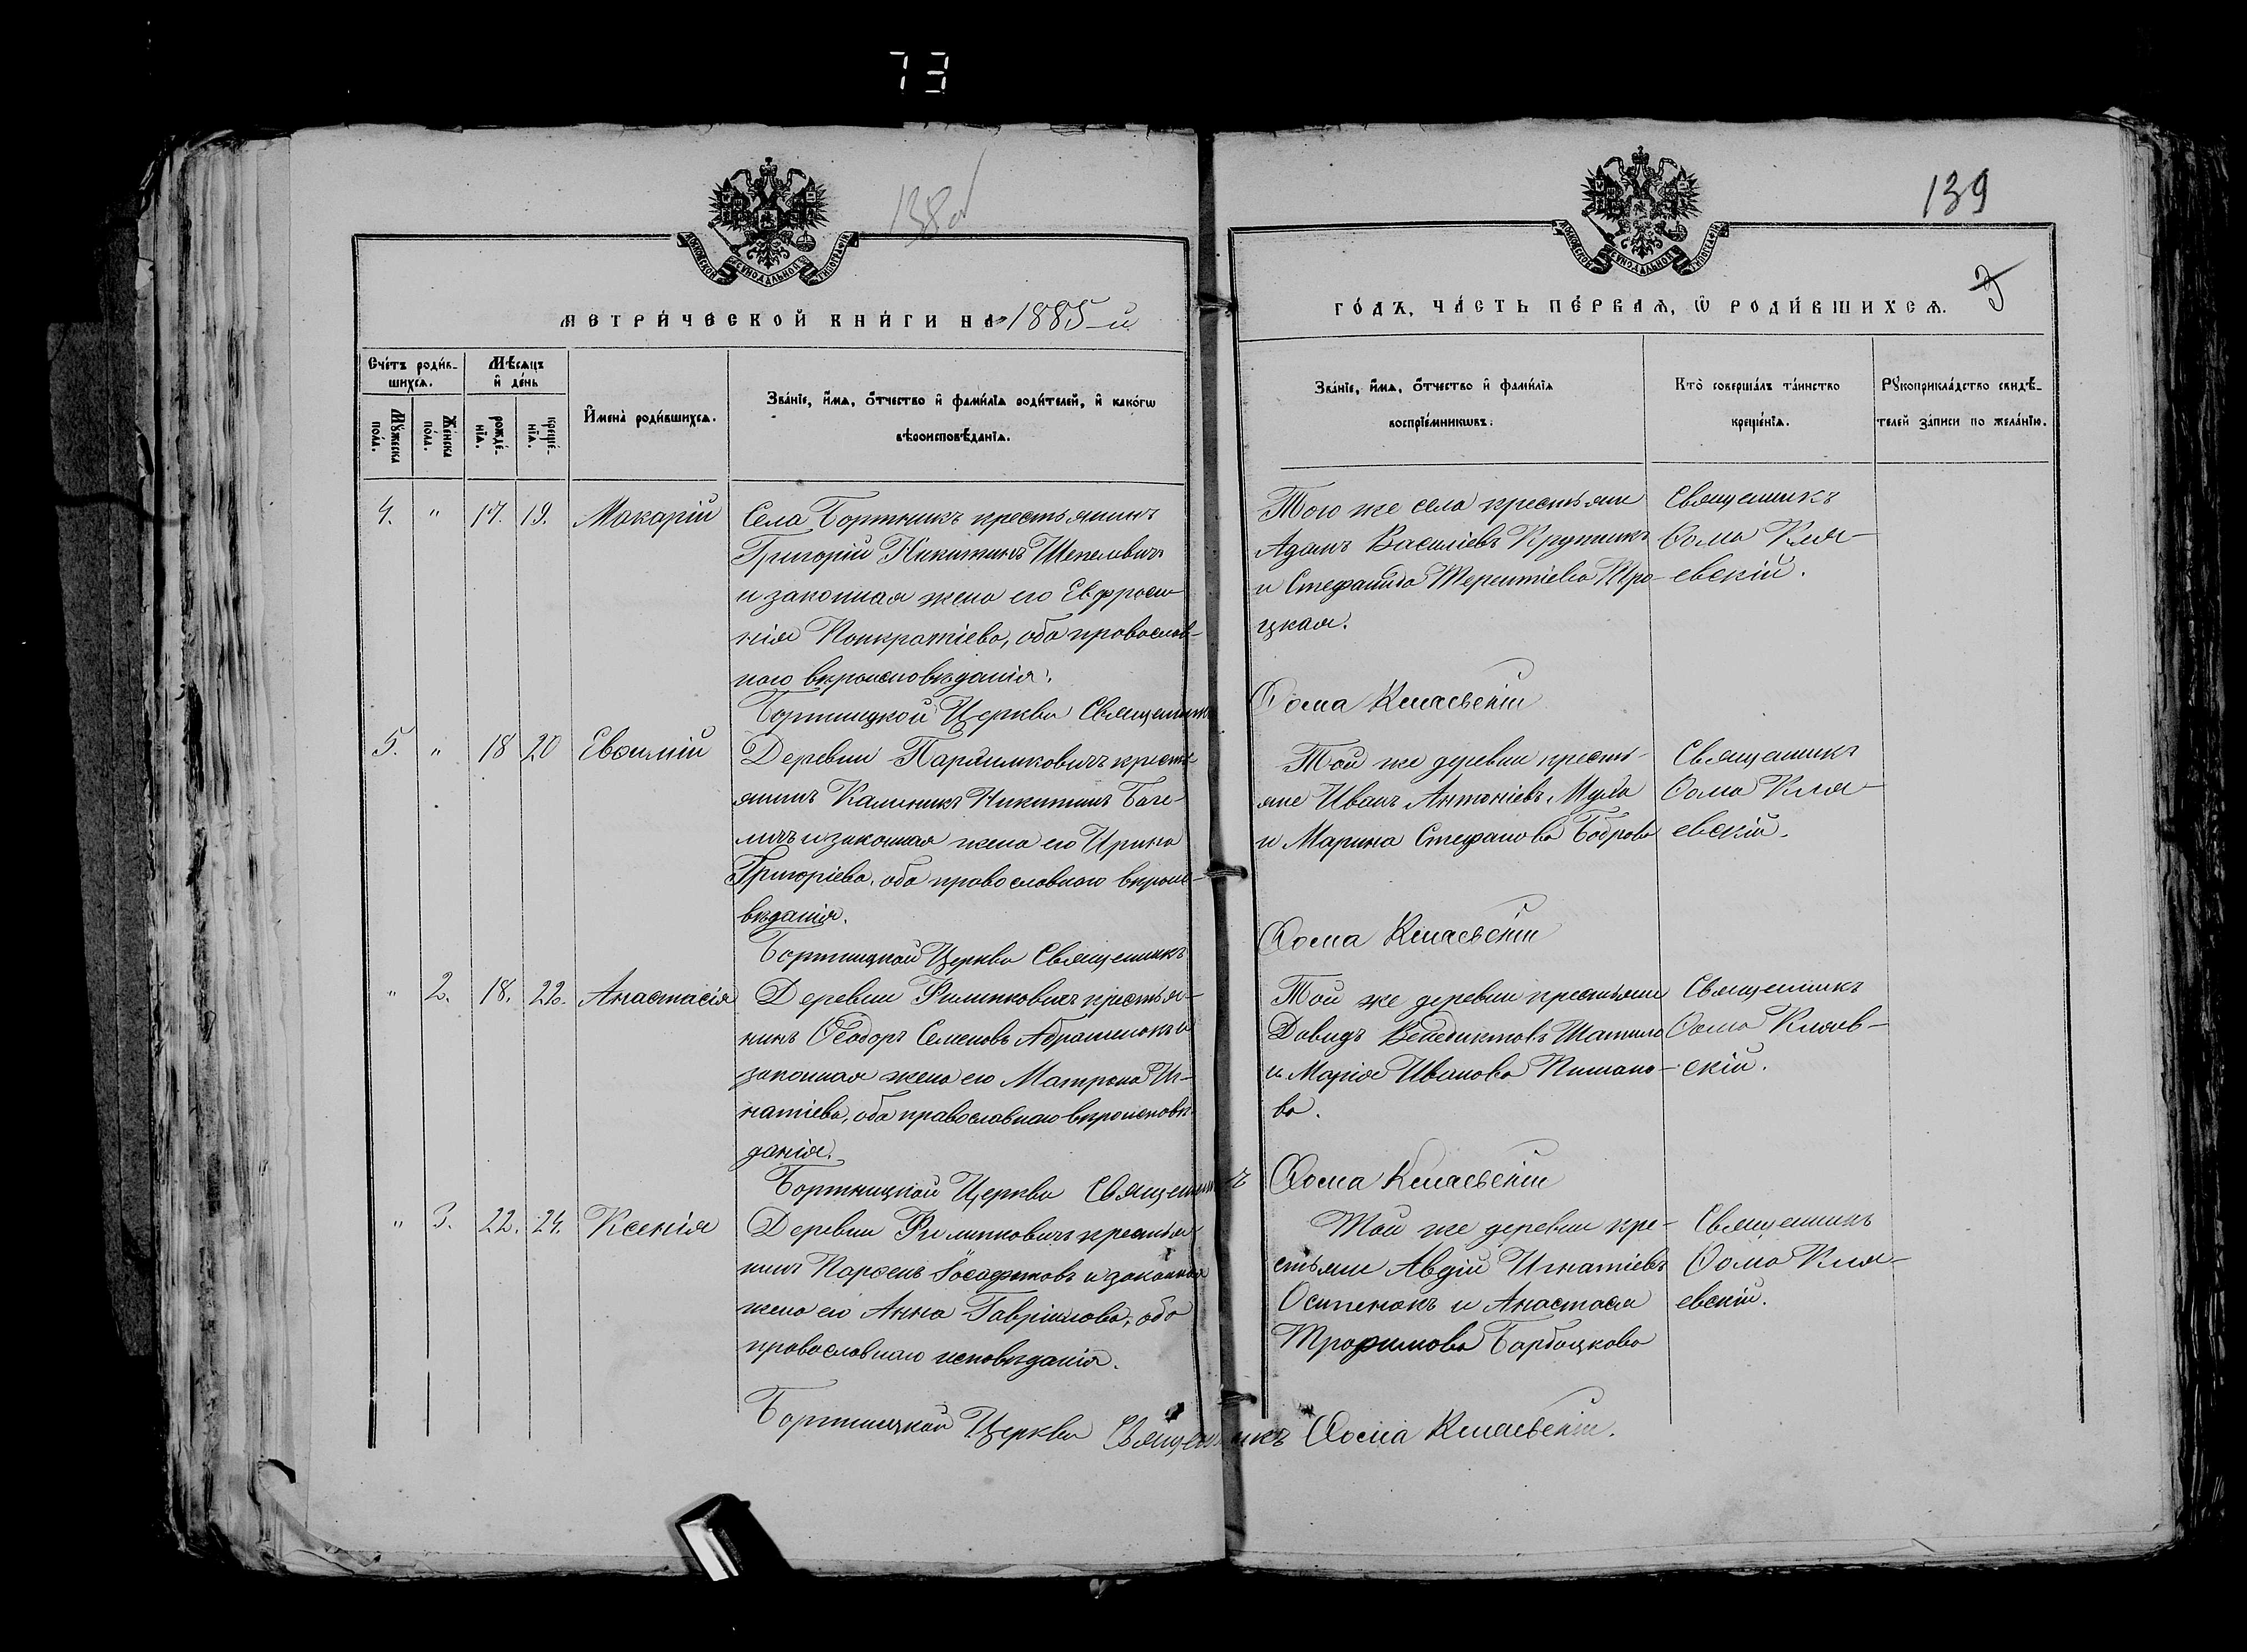 73
138 об
139
3
МЕТРИ́ЧЕСКОЙ КНИ́ГИ НА 1885-й
ГО́ДЪ, ЧА́СТЬ ПЕ́РВАЯ, Ѡ҆ РОДИ́ВШИХСЯ.
Сче́тъ роди́в-
шихся.
Мѣ́сяцъ
и҆ де́нь
Му́жеска
по́ла.
Же́нска
по́ла.
рожде́-
нїя.
креще́-
нїя.
И҆мена̀ роди́вшихся.
Зва́нїе, и҆́мя, ѻ҆́тчество и҆ фами́лїя роди́телей, и҆ како́гѡ
вѣроисповѣ́данїя.
Зва́нїе, и҆́мя, ѻ҆́тчество и҆ фами́лїя
воспрїе́мникѡвъ.
Кто̀ соверша́лъ та́инство
креще́нїя.
Рукоприкла́дство свидѣ́-
телей за́писи по жела́нїю.
4. " 17. 19. Макарій
Села Бортникъ крестьянинъ
Григорій Никитинъ Шепелевичъ
и законная жена его Евфроси-
нія Панкратіева, оба православ-
наго вѣроисповѣданія.
Бортницкой Церкви Священникъ
Того же села крестьяне
Адамъ Василіевъ Крупникъ
и Стефанида Терентіева Про-
цкая.
Ѳома Кляевскій
Священникъ
Ѳома Кля-
евскій.
5. " 18 20 Евѳимій
Деревни крестья-
нинъ Калиникъ Никитинъ
и законная жена его Ирина
Григоріева, оба православнаго вѣроиспо-
вѣданія.
Бортницкой Церкви Священникъ
Той же деревни кресть-
яне Иванъ Антоніевъ
и Марина Стефанова Боброва
Ѳома Кляевскій
Священникъ
Ѳома Кля-
евскій.
" 2. 18. 22. Анастасія
Деревни Филипковичъ крестья-
нинъ Ѳеодоръ Семеновъ Абраменокъ и
законная жена его Матрона Иг-
натіева, оба православнаго вѣроисповѣ-
данія.
Бортницкой Церкви Священникъ
Той же деревни крестьяне
Давидъ Венедиктовъ Шатило
и Марія Иванова
ва.
Ѳома Кляевскій
Священникъ
Ѳома Кляев-
скій.
" 3. 22. 24. Ксенія
Деревни Филипковичъ крестья-
нинъ Парѳенъ Іосафатовъ и законная
жена его Анна Гавріилова, оба
православнаго исповѣданія.
Бортницкой Церкви Священникъ
Той же деревни кре-
стьяне Авдій Игнатіевъ
Осипенокъ и Анастасія
Трофимова
Ѳома Кляевскій.
Священникъ
Ѳома Кля-
евскій.